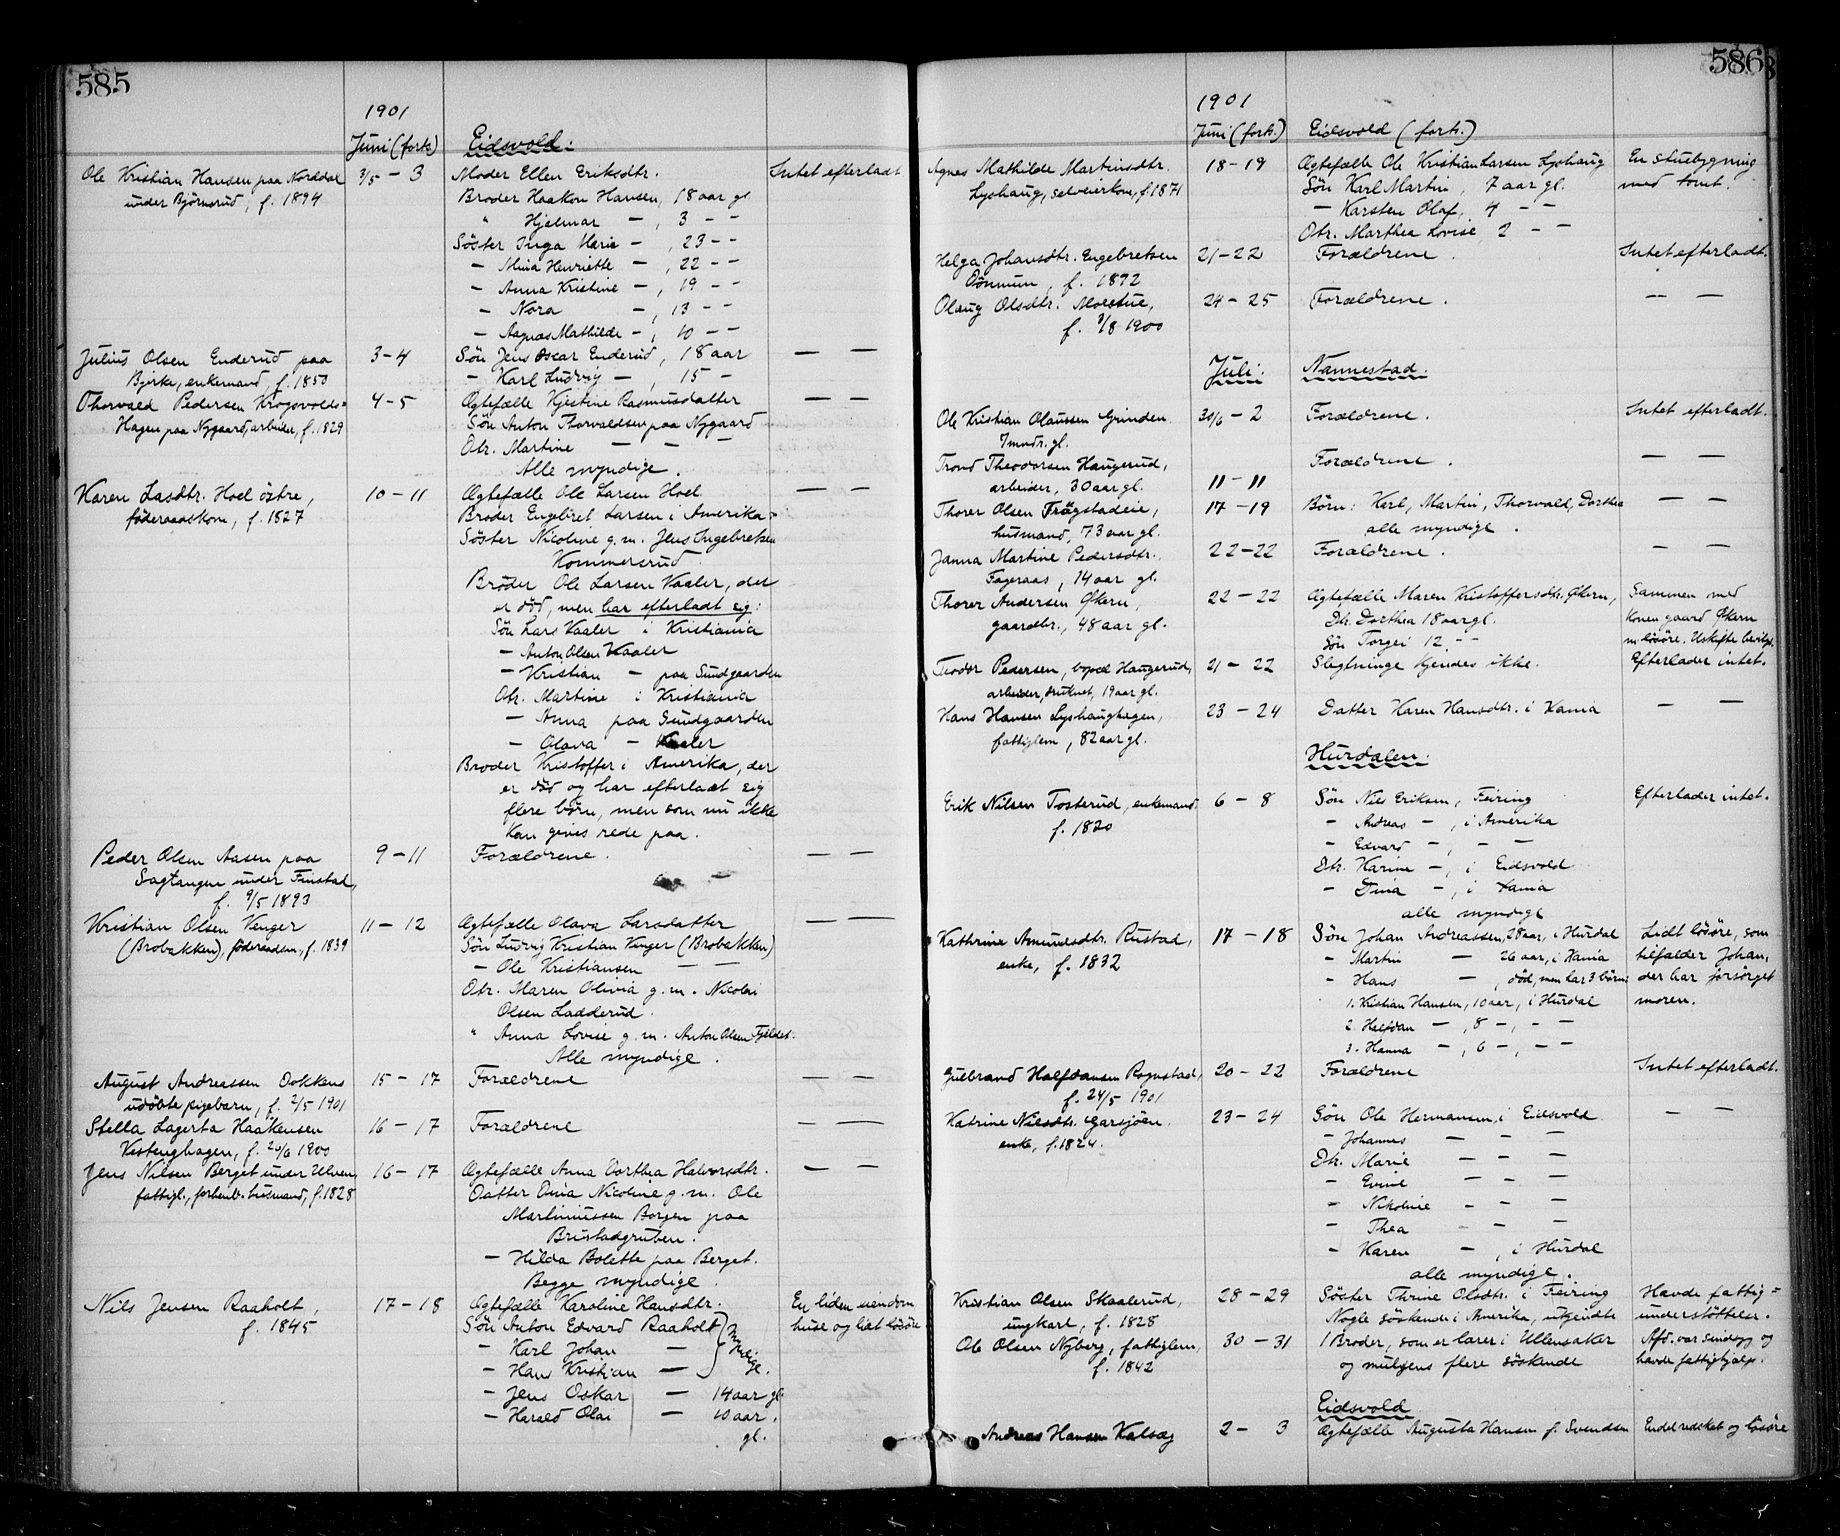 585
1901
Juni (forts)
Eidsvold:
Ole Kristian Hansen paa Norddal
under Björnsrud, f. 1894
3/5 - 3
Moder Ellen Eriksdtr.
Intet efterladt
Broder Haakon Hansen, 18 aar gl
" Hjelmar — , 3 - -
Söster Inga Marie — , 23 - -
- Mina Henriette — , 22 - -
- Anna Kristine — , 19 - -
- Nora — , 13 - -
- Agnas Mathilde — , 10 - -
Julius Olsen Enderud paa
Bjerke, enkemand, f. 1850
3-4
Sön Jens Oscar Enderud, 18 aar
- Karl Ludvig — , 15 -
— —
Thorvald Pedersen Krogsvolds=
Hagen paa Nygaard, arbeider, f. 1829
4-5
Ægtefælle Kjestine Rasmusdatter
Sön Anton Thorvaldsen paa Nygaard
Dtr. Martine — — —
Alle myndige.
— —
Karen Lasdtr. Hoel östre,
föderaadskone, f. 1827
10-11
Ægtefælle Ole Larsen Hoel
Broder Engebret Larsen i Amerika-
Söster Nicoline g. m. Jens Ingebretsen
Kommersrud.
Broder Ole Larsen Vaaler, der
er död, men har efterladt sig:
Sön Lars Vaaler i Kristiania
- Anton Olsen Vaaler
- Kristian — paa Sundgaarden
Dtr. Martine i Kristiania
- Anna paa Sundgaarden
- Olava — Vaaler
Broder Kristoffer i Amerika, der
er död og har efterladt sig
flere börn, men som nu ikke
kan gives rede paa.
— —
Peder Olsen Aasen paa
Sagtangen under Finstad,
f. 9/5 1893
9-11
Forældrene.
— —
Kristian Olsen Venger
(Brobakken), föderaadsm., f. 1839
11-12
Ægtefælle Olava Larsdatter
Sön Ludvig Kristian Venger (Brobakken)
- Ole Kristiansen — —
Dtr. Maren Olivia g. m. Nicolai
Olsen Ladderud.
" Anna Lovise g. m. Anton Olsen Fjeldet.
Alle myndige.
— —
August Andreassen Dokkens
udöbte pigebarn, f. 2/5 1901
15-17
Forældrene
— —
Stella Lagerta Haakensen
Vestenghagen, f. 20/6 1900
16-17
Forældrene
— —
Jens Nilsen Berget under Ulven,
fattigl., forhenv. husmand, f. 1828
16-17
Ægtefælle Anna Dorthea Halvorsdtr.
Datter Dina Nicoline g. m. Ole
Martiniussen Borgen paa
Brustadgruben.
- Hilda Bolette paa Berget.
Begge myndige.
— —
Nils Jensen Raaholt,
f. 1845
17-18
Ægtefælle Karoline Hansdtr.
Sön Anton Edvard Raaholt
- Karl Johan —
- Hans Kristian —
Myndige.
- Jens Oskar — 14 aar gl
- Harald Olai — 10 aar.
gl.
En liden eiendom
huse og lidt lösöre
586
1901
Juni (forts.)
Eidsvold (forts.)
Agnes Mathilde Martinsdtr.
Lyshaug, selveierkone, f. 1871
18-19
Ægtefælle Ole Kristian Larsen Lyshaug
Sön Karl Martin, 7 aar gl.
- Karsten Olaf, 4 - -
Dtr. Marthea Lovise 2 - -
En stuebygning
med tomt.
Helga Johansdtr. Engebretsen
Dönnum, f. 1892
21-22
Forældrene.
Intet efterladt.
Olaug Olsdtr. Morstue,
f. 3/8 1900
24-25
Forældrene.
— —
Juli:
Nannestad:
Ole Kristian Olaussen Grinden
7 mndr. gl.
30/6 - 2
Forældrene.
Intet efterladt.
Trond Theodorsen Haugerud,
arbeider, 30 aar gl.
11-11
Forældrene.
— —
Thorer Olsen Frögstadeie,
husmand, 73 aar gl.
17-19
Börn: Karl, Martin, Thorvald, Dorthea
alle myndige.
— —
Janna Martine Pedersdtr.
Fageraas, 14 aar gl.
22-22
Forældrene.
— —
Thorer Andersen Økern,
gaardbr., 48 aar gl.
22-22
Ægtefælle Maren Kristoffersdtr. Økern,
Dtr. Dorthea 18 aar gl.
Sön Torgei 12 - -
Sammen med
konen gaard Økern
m. lösöre. Uskifte bevilg.
Teodor Pedersen, Haugerud,
arbeider, druknet, 19 aar gl.
21-22
Slegtninge kjendes ikke.
Efterlader intet.
Hans Hansen Lyshaughagen,
fattiglem, 82 aar gl.
23-24
Datter Karen Hansdtr. i Xania
— —
Hurdalen:
Erik Nilsen Tosterud, enkemand.
f. 1820
6-8
Sön Nils Eriksen, Feiring
- Andreas — , i Amerika
- Edvard — , — —
Dtr. Karine — , i Eidsvold
- Dina — , i Xania
alle myndige
Efterlader intet.
Kathrine Amundsdtr. Rustad,
enke, f. 1832
17-18
Sön Johan Andreassen, 28 aar, i Hurdal
- Martin — 26 aar, i Xania
- Hans — , död, men har 3 börn:
1. Kristian Hansen, 10 aar, i Hurdal
2. Halfdan — , 8 — , — —
3. Hanna — , 6 — , — —
Lidt lösöre, som
tilfalder Johan,
der har forsörget
moren.
Gulbrand Halfdansen Rognstad,
f. 24/5 1901
20-22
Forældrene
Intet efterladt.
Katrine Nilsdtr. Garsjöen,
enke, f. 1824.
23-24
Sön Ole Hermansen, i Eidsvold
- Johannes — — —
Dtr. Marie — — —
- Evine — — —
- Nikoline — — —
- Thea — — —
- Karen — , i Hurdal
alle myndige.
— —
Kristian Olsen Skaalerud,
ungkarl, f. 1828
28-29
Söster Thrine Olsdtr. i Feiring
Nogle söskende i Amerika, ukjendte
Havde fattig=
understöttelse.
Ole Olsen Nyberg, fattiglem,
f. 1842
30-31
1 Broder, som er lærer i Ullensaker
og muligens flere söskende
Afd. var sindssyg og
havde fattighjælp.
Eidsvold
Andreas Hansen Kalsæg
2-3
Ægtefælle Augusta Hansen f. Svendsen
Endel redskab og lösöre